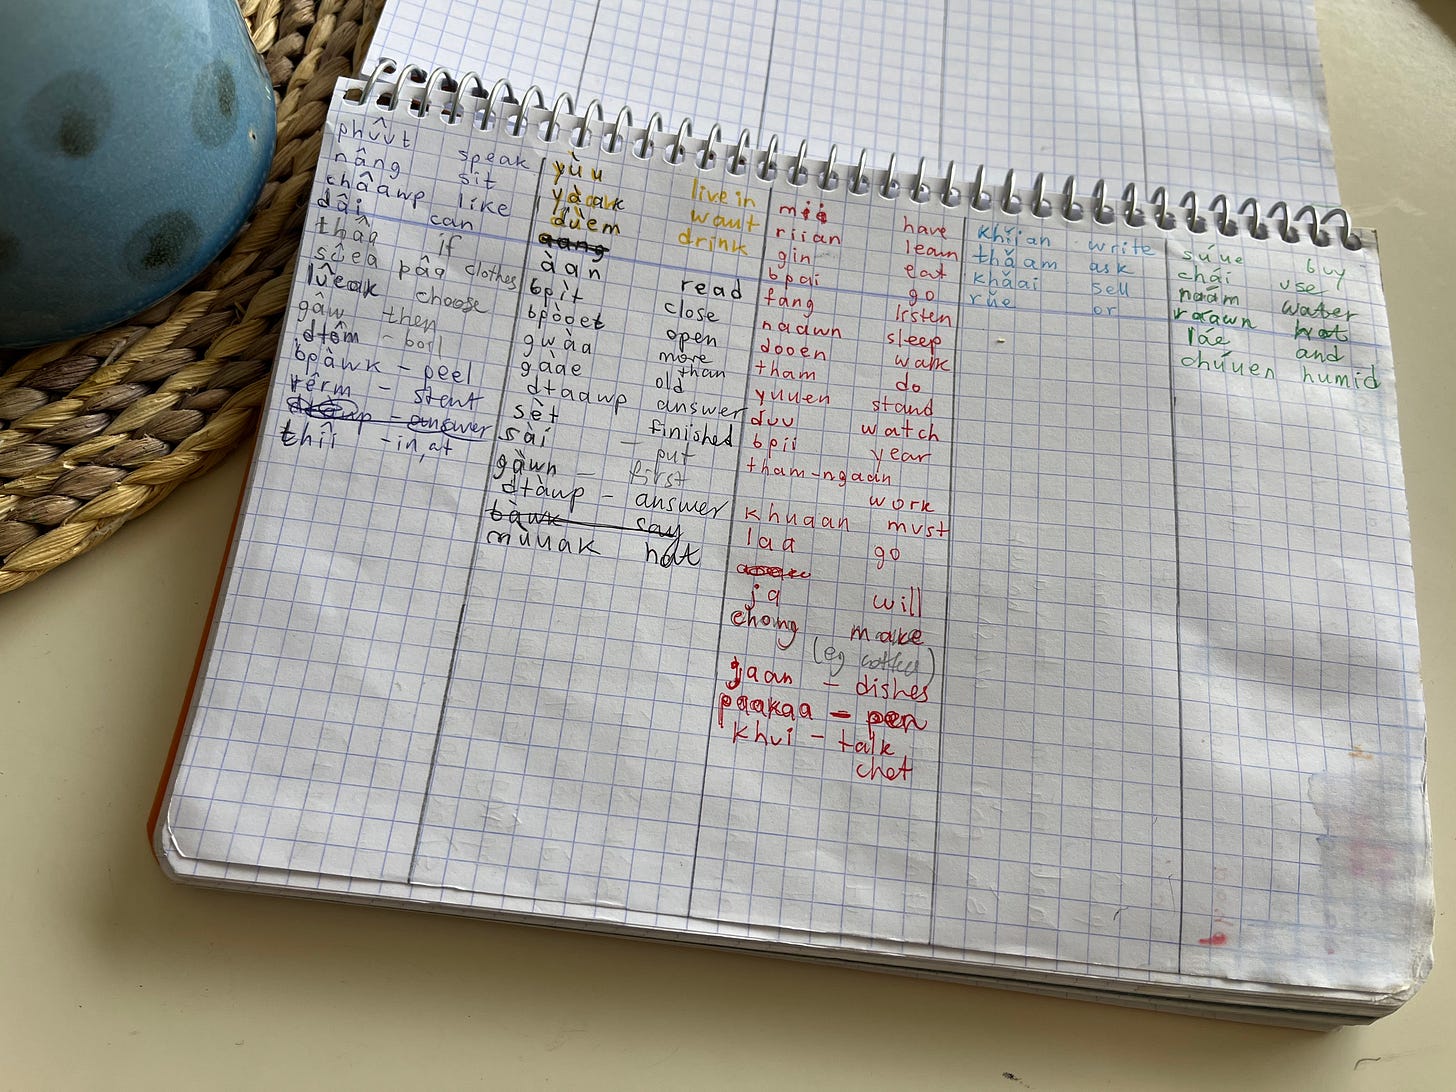 phûut speak
nâng sit
châawp like
dâi can
thâa if
sûea pâa clothes
lûeak choose
gâw then
dtôm - boil
bpàwk - peel
rêrm - start
answer
thîi - in, at
yùu live in
yàak want
dùem drink
àan read
bpìt close
bpòet open
gwàa more than
gàae old
dtaawp answer
sèt finished
sài - put
gàwn - first
dtàwp - answer
bàwk say
mùuak hat
mii have
riian learn
gin eat
bpai go
fang listen
naawn sleep
dooen walk
tham do
yuuen stand
duu watch
bpii year
tham-ngaan
work
khuaan must
laa go
ja will
chong make
(eg coffee)
gaan - dishes
paakaa - pen
khui - talk
chat
khǐian write
thǎam ask
khǎai sell
rǔe or
súue buy
chái use
náam water
ráawn hot
láe and
chúuen humid